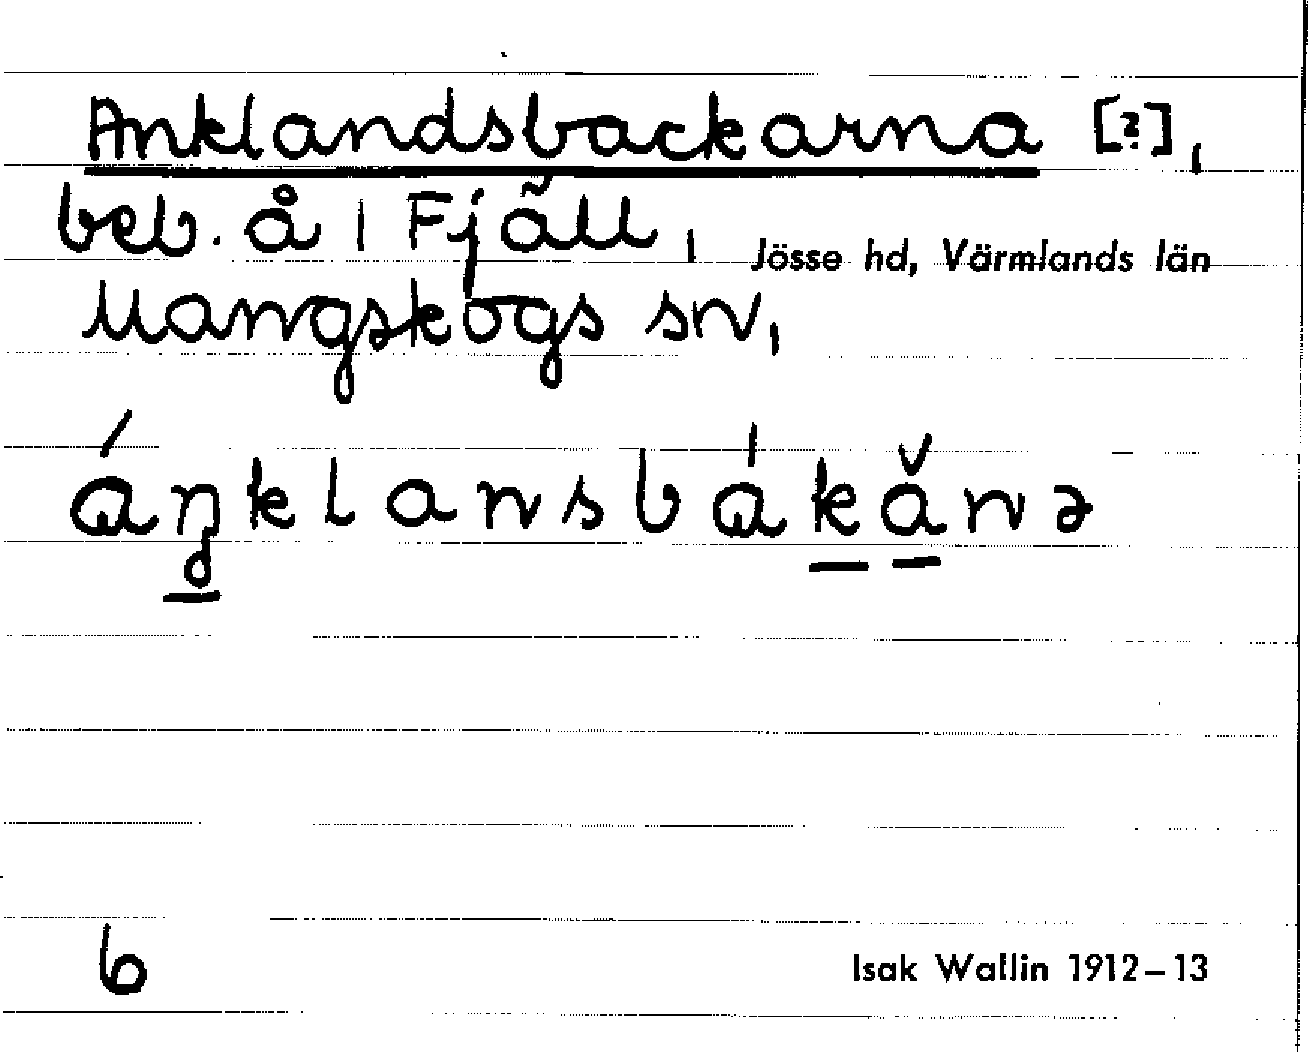 Anklandsbackarna [?],
beb. å 1 Fjäll,
Jösse hd, Värmlands län
Mangskogs sn,
áŋklansbákănə
6
Isak Wallin 1912–13